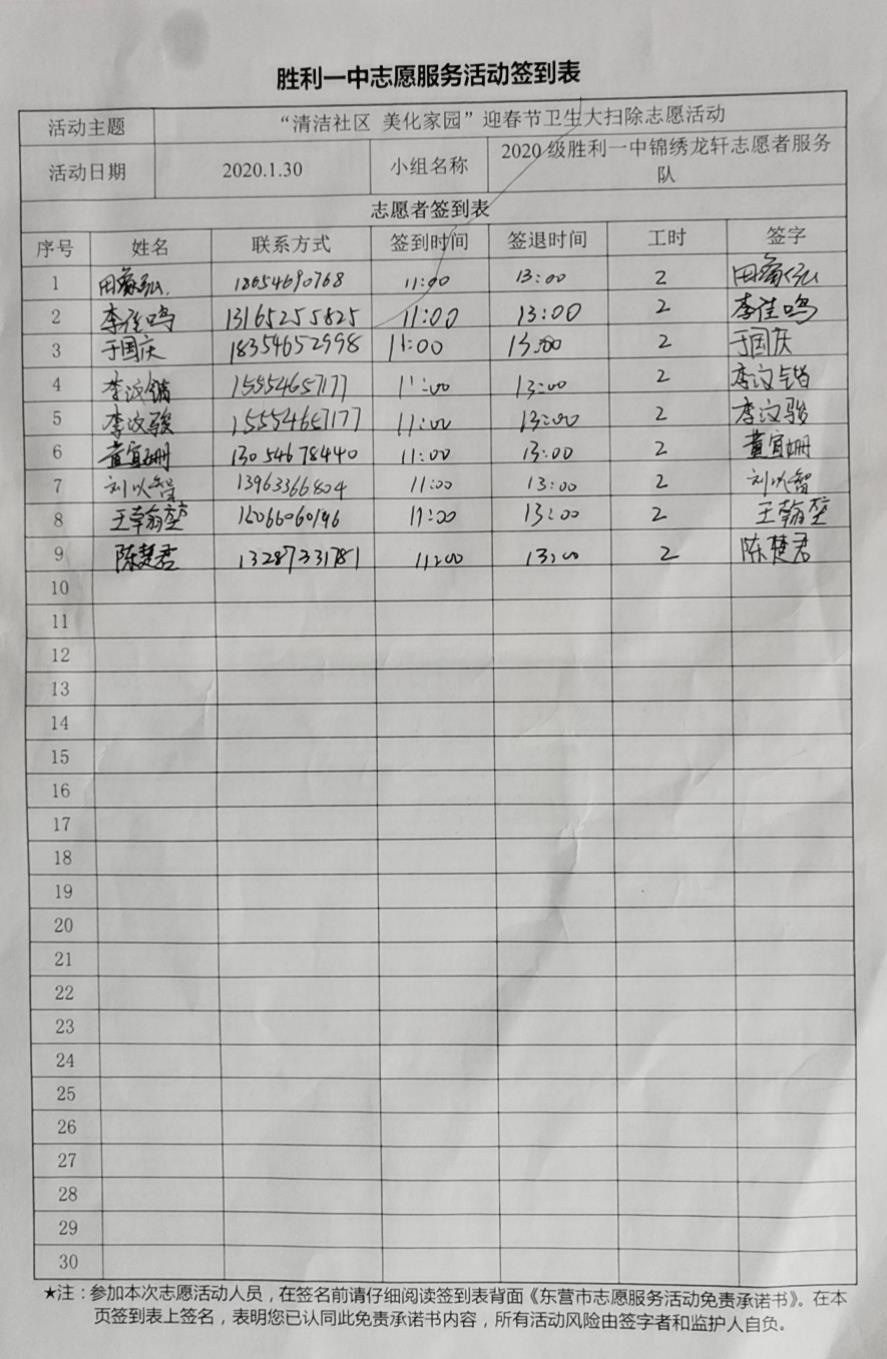 胜利一中志愿服务活动签到表
活动主题 “清洁社区 美化家园”迎春节卫生大扫除志愿活动
活动日期 2020.1.30 小组名称 2020级胜利一中锦绣龙轩志愿者服务
队
志愿者签到表
序号 姓名 联系方式 签到时间 签退时间 工时 签字
1 18654690768 11:00 13:00 2
2 李佳鸣 13165255825 11:00 13:00 2 李佳鸣
3 于国庆 18354652998 11:00 13:00 2 于国庆
4 李汶锴 15554657177 11:00 13:00 2 李汶锴
5 李汶骏 15554657177 11:00 13:00 2 李汶骏
6 黄宜姗 13054678440 11:00 13:00 2 黄宜姗
7 刘以智 13963366804 11:00 13:00 2 刘以智
8 11:00 13:00 2
9 陈楚君 13287331781 11:00 13:00 2 陈楚君
10
11
12
13
14
15
16
17
18
19
20
21
22
23
24
25
26
27
28
29
30
★注：参加本次志愿活动人员，在签名前请仔细阅读签到表背面《东营市志愿服务活动免责承诺书》。在本
页签到表上签名，表明您已认同此免责承诺书内容，所有活动风险由签字者和监护人自负。